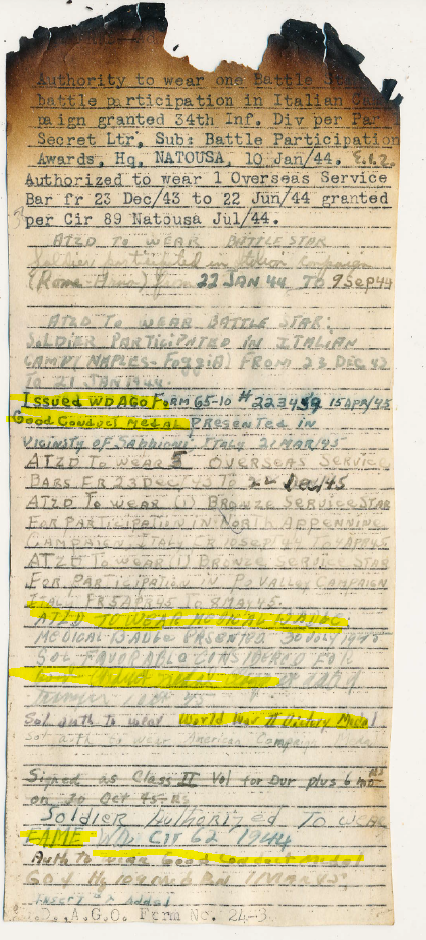 Authority to wear one Battle
battle participation in Italian Cam
paign granted 34th Inf. Div per Par
Secret Ltr, Sub: Battle Participation
Awards, Hq, NATOUSA, 10 Jan/44. E.I.Z.
Authorized to wear 1 Overseas Service
Bar fr 23 Dec/43 to 22 Jun/44 granted
per Cir 89 Natousa Jul/44.
ATZD TO WEAR BATTLE STAR
Soldier participated in Italian campaign
(Rome-Arno) from 22 JAN 44 TO 9 Sep 44
ATZD TO WEAR BATTLE STAR:
SOLDIER PARTICIPATED IN ITALIAN
CAMP( NAPLES-FoggiA) FROM 23 DEC
to 21 JAN 1944.
Issued WDAGO FORM 65-10 # 223459 15 APR/45
Good Conduct MEDAL PRESENTED IN
VICINSTY OF SABBIONI, ITALY 21 MAR/45
ATZD TO WEAR OVERSEAS SERVICE
BARS FR 23 Dec/43 TO 22 Dec/45
ATZD TO WEAR (1) BRONZE SERVICE STAR
FOR PARTICIPATION IN NORTH APPENNINE
CAMPAIGN ITALY FR 10 Sep/44 TO 4 APR45
ATZD TO WEAR (1) BRONZE SERVICE STAR
FOR PARTICIPATION IN PO VALLEY CAMPAIGN
ITALY FR 5 APR45 TO 8 MAY 45.
ATZD TO WEAR MEDICAL BADGE
MEDICAL BADGE PRSENTED 30 JULY 1945
SOL FAVORABLE CONSIDERED FO
Good
Sol auth to wear World War II Victory Medal
Sol auth to wear American Campaign Medal
Signed as Class II Vol for Dur plus 6 mos
on 20 Oct 45-
Soldier Authorized To wear
EAME WD Cir 62 1944
Auth to wear Good Conduct Medal
GO 4 Hq 109 Med Bn
Insert
D., A.G.O. Form No. 24-3